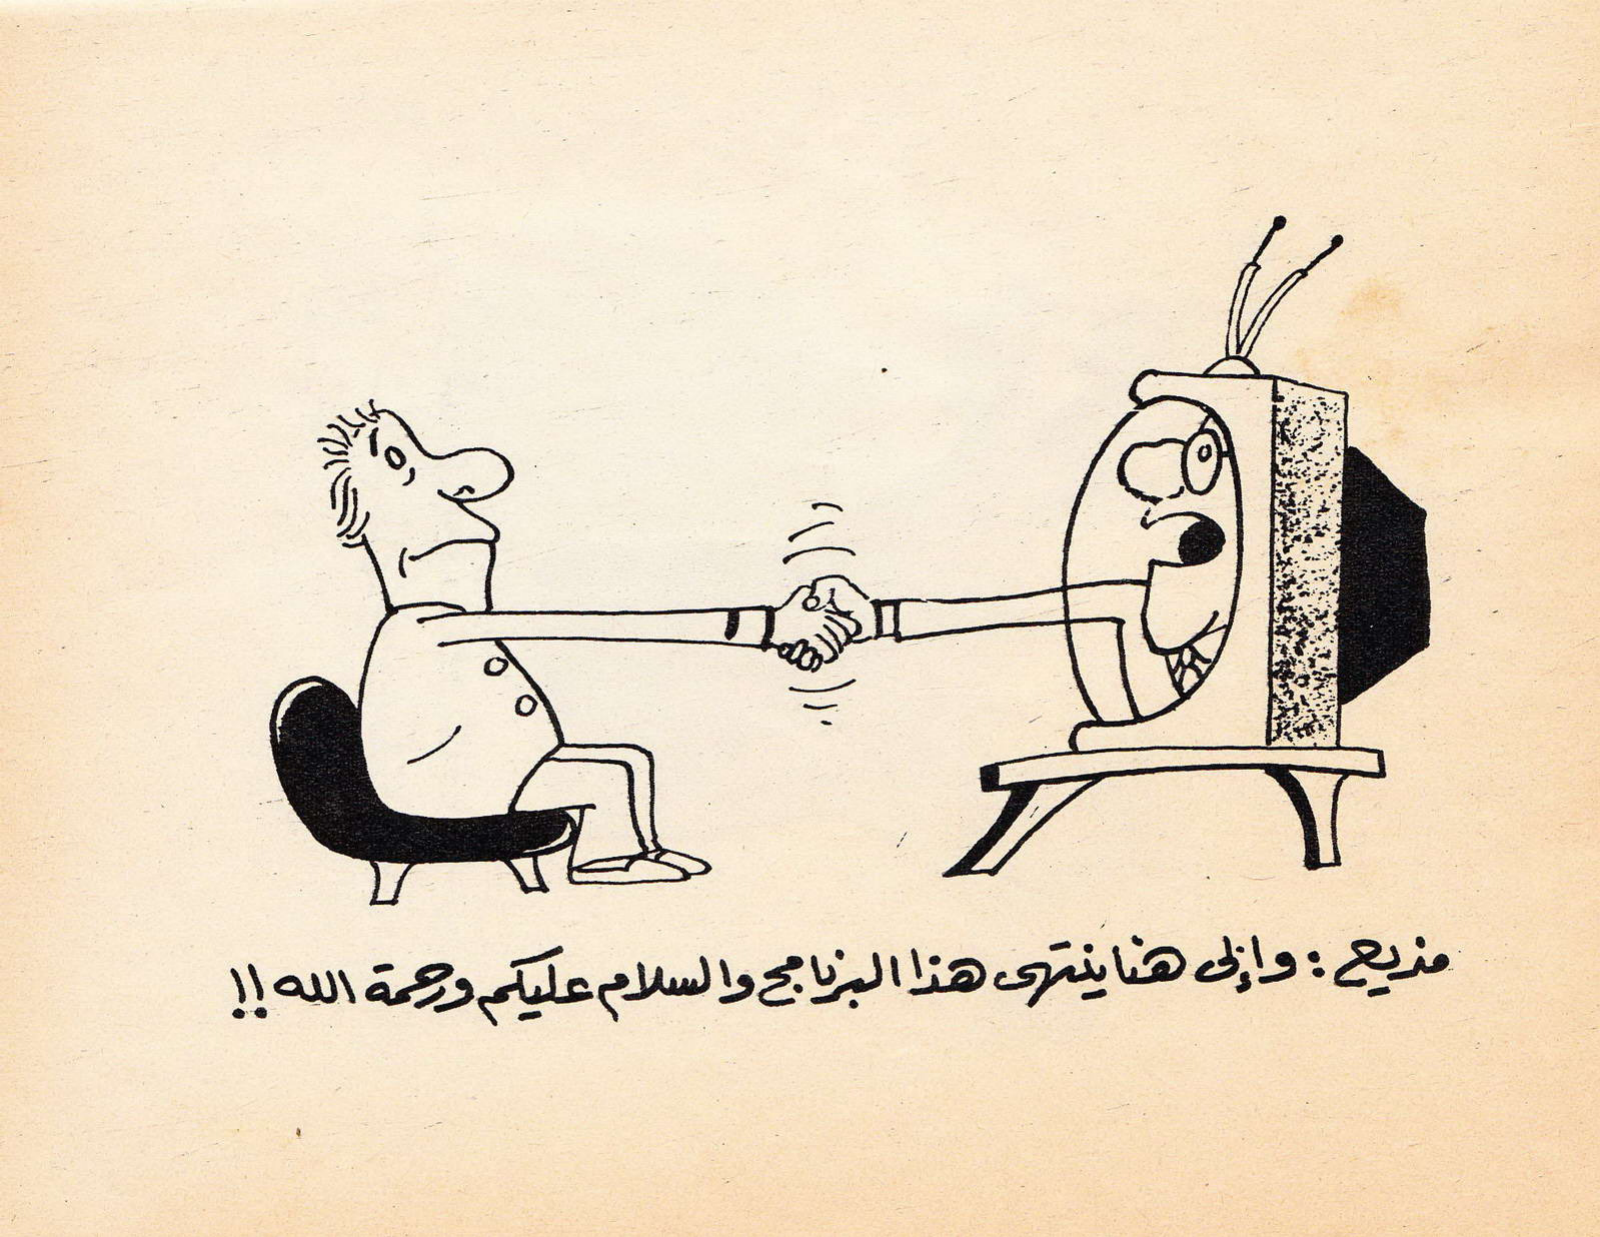 مذيع : وإلى هنا ينتهى هذا البرنامج والسلام عليكم ورحمة الله !!